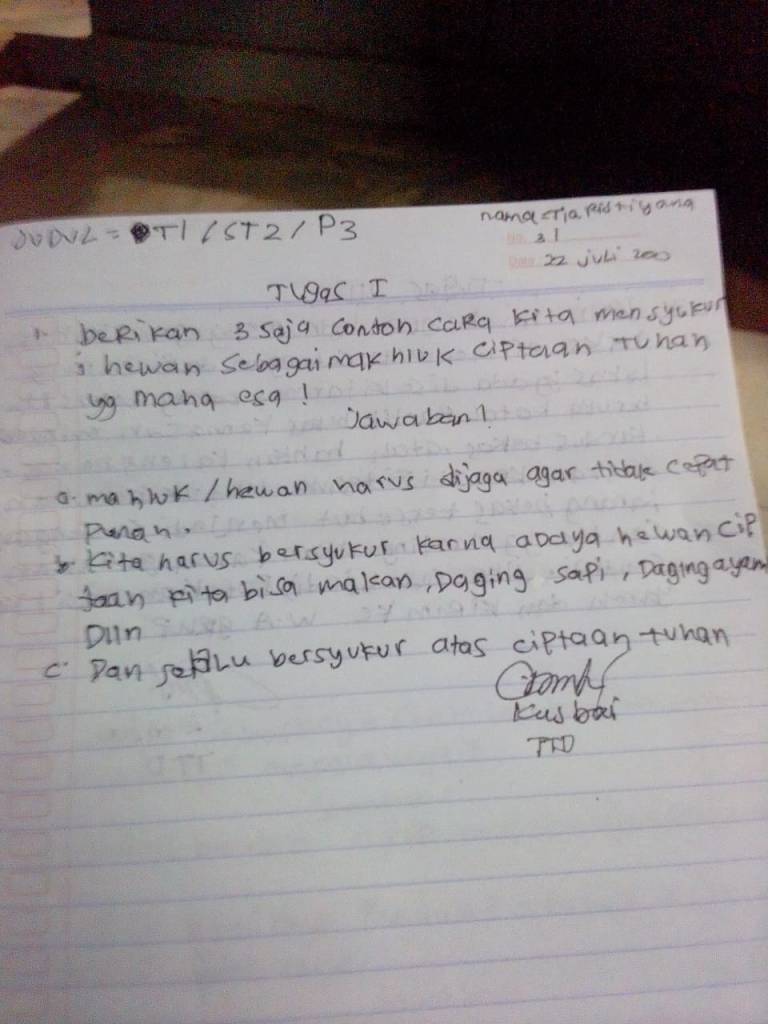 JUDUL = T1 / ST2 / P3
nama = Tia Ristiyana
No. 31
Date. 22 juli
Tugas I
1. beRikan 3 saja contoh caRa kita mensyukur
i hewan sebagai makhluk ciptaan tuhan
yg maha esa !
Jawaban !
a. mahluk / hewan harus dijaga agar tidak cepat
punah.
b. Kita harus bersyukur karna adaya hewan cip
taan kita bisa makan, Daging sapi, Daging ayam
Dlln
c. Dan selalu bersyukur atas ciptaan tuhan
TTD